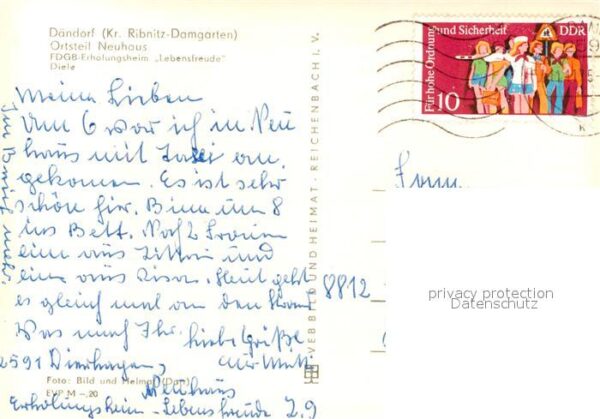 Dändorf (Kr. Ribnitz-Damgarten)
Ortsteil Neuhaus
FDGB-Erholungsheim „Lebensfreude"
Diele
Meine Lieben
Um 6 war ich in Neu
haus mit Taxi an.
gekomen. Es ist sehr
schön hir. Bin um 8
ins Bett. Noch 2 Frauen
eine aus Zittau und
eine aus Risa. Heut geht
es gleich mal an den
Was macht Ihr. liebe Grüße
eure Mutti
2591 Dierhagen
Neuhaus
Erholungsheim Lebensfreude Z. 9
Im Brief mehr.
Foto: Bild und Heimat
EVP M -.20
VEB BILD UND HEIMAT · REICHENBACH I. V.
Für hohe Ordnung und Sicherheit
DDR
10
K
8812
privacy protection
Datenschutz